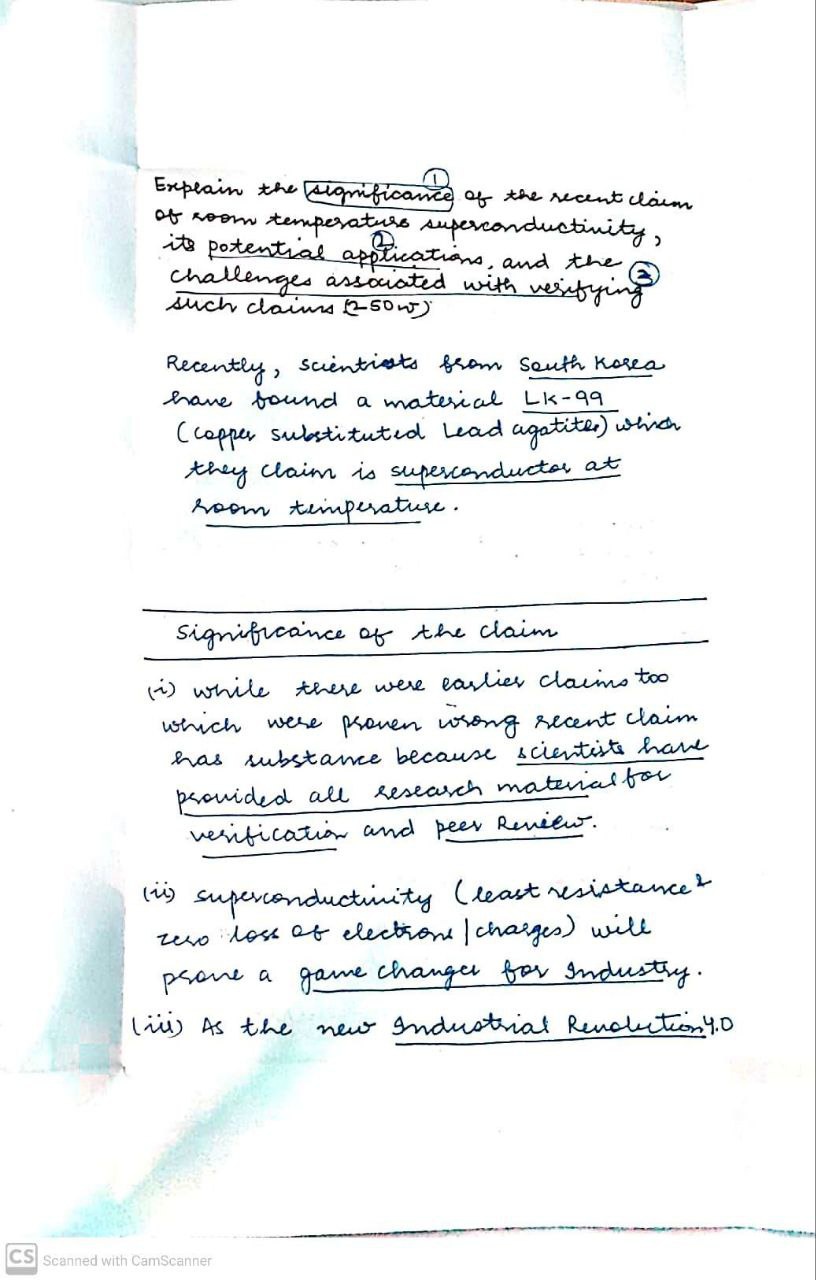 Explain the significance of the recent claim
1
of room temperature superconductivity,
its potential applications, and the
2
challenges associated with verifying
such claims (250w)
Recently, scientists from South Korea
have found a material LK-99
(copper substituted Lead agatites) which
they claim is superconductor at
room temperature.
Significance of the claim
(i) while there were earlier claims too
which were proven wrong recent claim
has substance because scientists have
provided all research material for
verification and peer Review.
(ii) superconductivity (least resistance &
zero loss of electrons | charges) will
prove a game changer for Industry.
(iii) As the new Industrial Revolution 4.0
CS Scanned with CamScanner